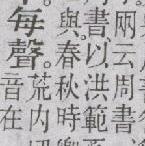 兩云周書
書以洪範
與。春秋時
每聲。荒
音在